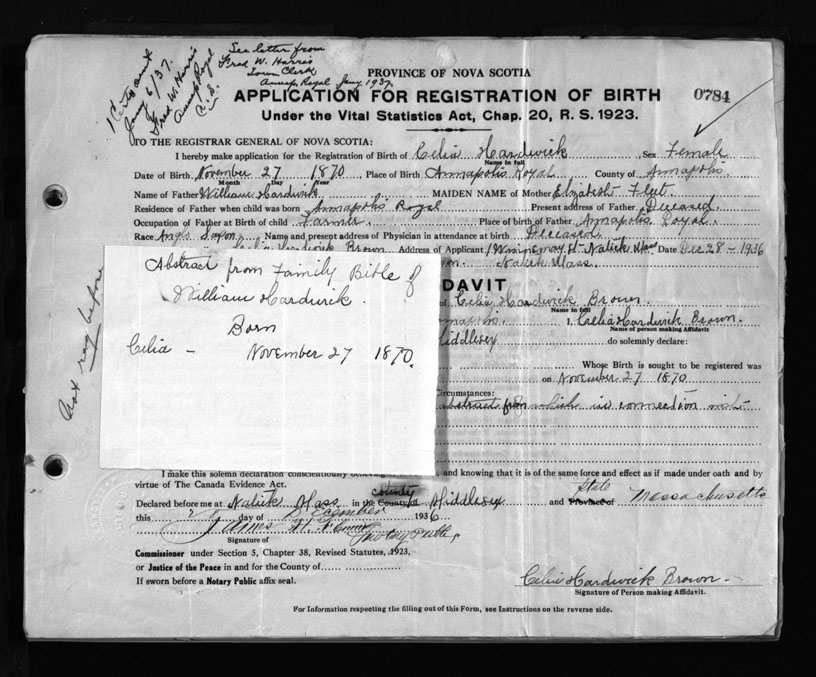 1 Cert sent
Jany 6/37.
Fred W. Harris
Annap Royal
N.S.
See letter from
Fred W. Harris
Town Clerk
Annap Royal Jany 1937
PROVINCE OF NOVA SCOTIA
APPLICATION FOR REGISTRATION OF BIRTH 0784
Under the Vital Statistics Act, Chap. 20, R. S. 1923.
TO THE REGISTRAR GENERAL OF NOVA SCOTIA:
I hereby make application for the Registration of Birth of Celia Hardwick Sex Female
Name in full
Date of Birth November 27 1870 Place of Birth Annapolis Royal County of Annapolis.
Month Day Year
Name of Father William Hardwick MAIDEN NAME of Mother Elizabeth Fleet
Residence of Father when child was born Annapolis Royal Present address of Father Deceased
Occupation of Father at Birth of child Farmer Place of birth of Father Annapolis Royal.
Race Anglo Saxon Name and present address of Physician in attendance at birth Deceased
Celia Hardwick Brown Address of Applicant Natick Mass Date Dec 28 - 1936
Natick Mass.
DAVIT
of Celia Hardwick Brown.
Name in full
I, Celia Hardwick Brown.
Name of person making Affidavit
Middlesex do solemnly declare:
Whose Birth is sought to be registered was
on November 27 1870
Circumstances:
abstract from which in connection
Abstract from Family Bible of
William Hardwick.
Born
Celia - November 27 1870.
Not reg before
I make this solemn declaration conscientiously believing and knowing that it is of the same force and effect as if made under oath and by
virtue of The Canada Evidence Act.
Declared before me at Natick Mass in the County of Middlesex and State Province of Massachusetts
this day of December 1936
Notary Public
Signature of
Commissioner under Section 5, Chapter 38, Revised Statutes, 1923,
or Justice of the Peace in and for the County of
If sworn before a Notary Public affix seal.
Celia Hardwick Brown.
Signature of Person making Affidavit.
For Information respecting the filling out of this Form, see Instructions on the reverse side.